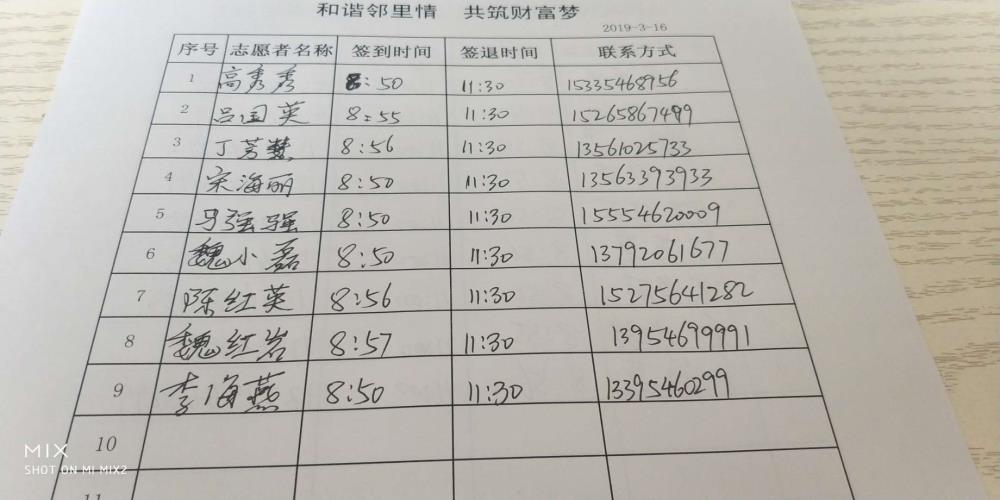 和谐邻里情 共筑财富梦
2019-3-16
序号 志愿者名称 签到时间 签退时间 联系方式
1 高秀秀 8:50 11:30 15335468956
2 吕国英 8:55 11:30 15265867499
3 丁芳慧 8:56 11:30 13561025733
4 宋海丽 8:50 11:30 13563393933
5 马强强 8:50 11:30 15554620009
6 魏小磊 8:50 11:30 13792061677
7 陈红英 8:56 11:30 15275641282
8 魏红岩 8:57 11:30 13954699991
9 李海燕 8:50 11:30 13395460299
10
11
MIX
SHOT ON MI MIX2